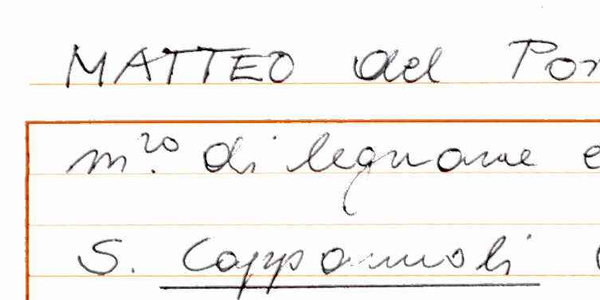 MATTEO del Por
m.ro di legname e
S. Cappannoli (